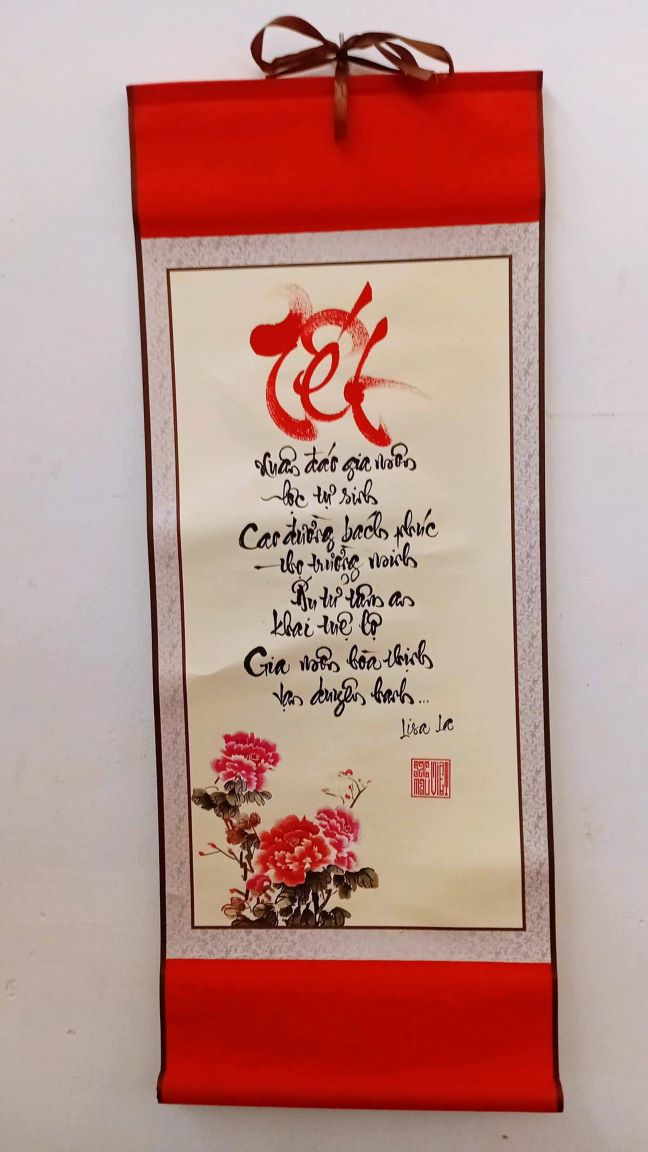 Tết
Xuân đáo gia môn
lộc tự sinh
Cao đường bách phúc
thọ trường minh
Ấu tử tâm an
khai tuệ lộ
Gia môn hòa thịnh
vạn duyên hanh...
Lisa La
SẮC
MÀU VIỆT